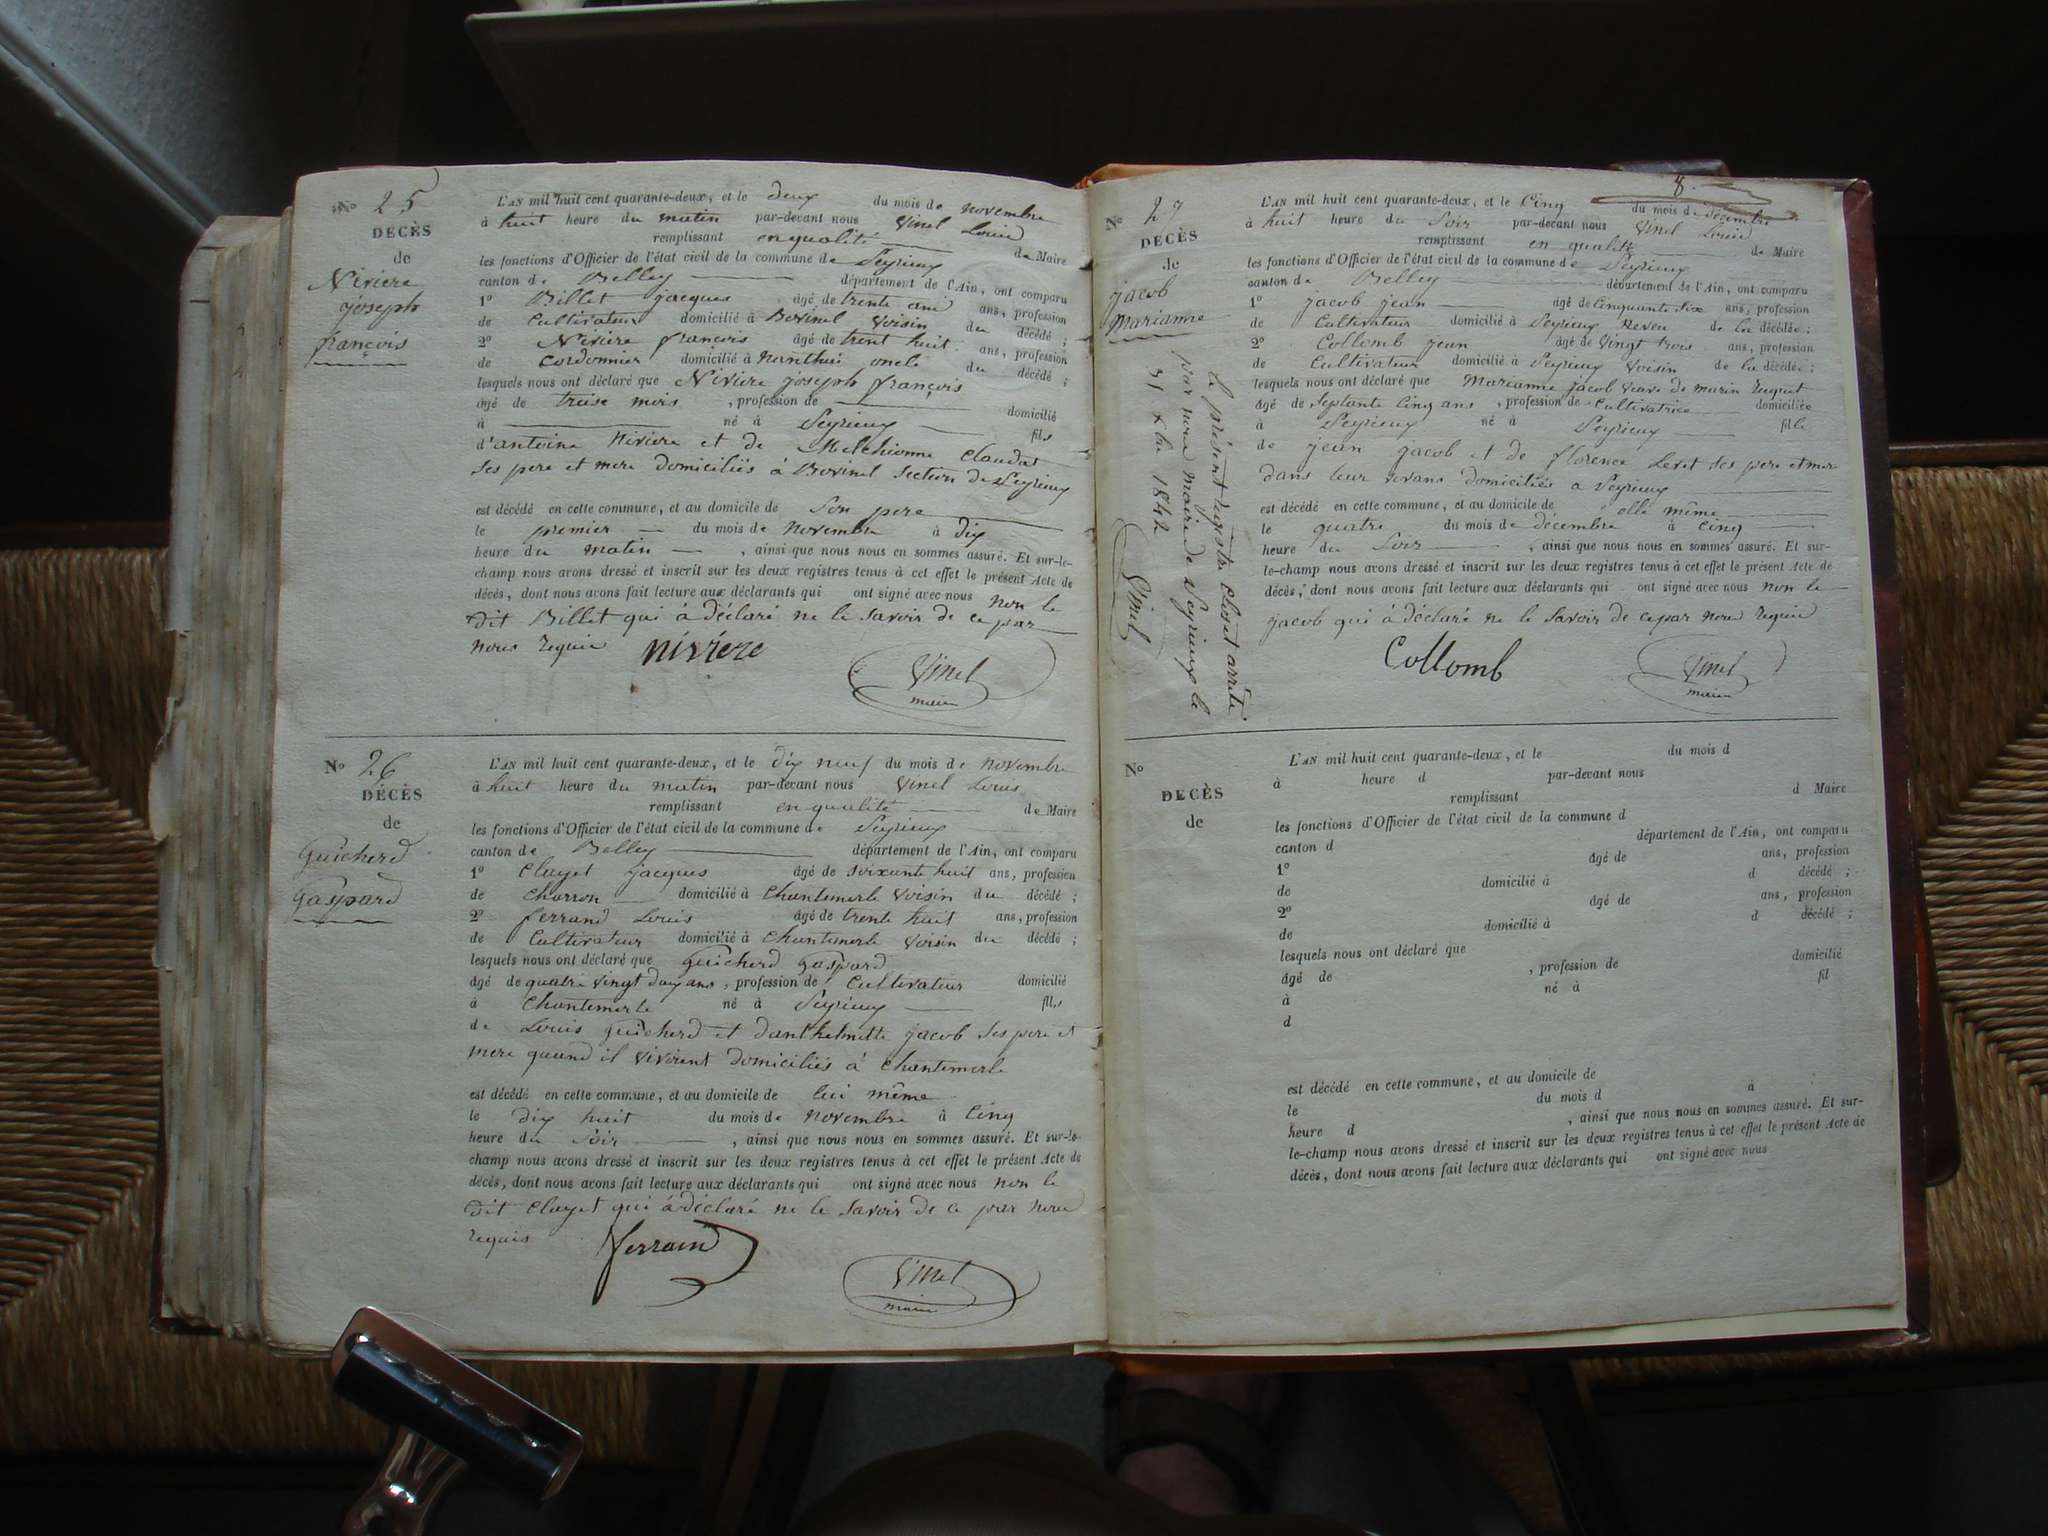 N° 25
DECÈS
de
Niviere
joseph
françois
L'AN mil huit cent quarante-deux, et le deux du mois de novembre
à huit heure du matin par-devant nous Vinel Louis
remplissant en qualité de Maire
les fonctions d'Officier de l'état civil de la commune de Peyrieux
canton de Belley département de l'Ain, ont comparu
1° Billet jacques âgé de trente ans ans, profession
de Cultivateur domicilié à Bovinel voisin du décédé ;
2° Niviere françois âgé de trent huit ans, profession
de Cordonnier domicilié à Nanthui oncle du décédé ;
lesquels nous ont déclaré que Niviere joseph françois
âgé de treise mois , profession de domicilié
à né à Peyrieux fils
d'antoine Niviere et de Melchionne Claudat
ses pere et mere domiciliés à Bovinel section de Peyrieux
est décédé en cette commune, et au domicile de son pere
le premier du mois de novembre à dix
heure du matin , ainsi que nous nous en sommes assuré. Et sur-le-
champ nous avons dressé et inscrit sur les deux registres tenus à cet effet le présent Acte de
décès, dont nous avons fait lecture aux déclarants qui ont signé avec nous non le
dit Billet qui à déclaré ne le savoir de ce par
nous requis niviere Vinel
maire
N° 26
DÉCÈS
de
Guicherd
Gaspard
L'AN mil huit cent quarante-deux, et le dix neuf du mois de novembre
à huit heure du matin par-devant nous Vinel Louis
remplissant en qualité de Maire
les fonctions d'Officier de l'état civil de la commune de Peyrieux
canton de Belley département de l'Ain, ont comparu
1° Clayet jacques âgé de soixante huit ans, profession
de charron domicilié à Chantemerle voisin du décédé ;
2° ferrand Louis âgé de trente huit ans, profession
de Cultivateur domicilié à Chantemerle voisin du décédé ;
lesquels nous ont déclaré que Guicherd Gaspard
âgé de quatre vingt deux ans , profession de Cultivateur domicilié
à Chantemerle né à Peyrieux fils
de Louis guicherd et danthelmette jacob ses pere et
mere quand il vivoient domiciliés à Chantemerle
est décédé en cette commune, et au domicile de lui même
le dix huit du mois de novembre à Cinq
heure du soir , ainsi que nous nous en sommes assuré. Et sur-le-
champ nous avons dressé et inscrit sur les deux registres tenus à cet effet le présent Acte de
décès, dont nous avons fait lecture aux déclarants qui ont signé avec nous non le
dit Clayet qui à déclaré ne le savoir de ce par nous
requis ferrand
Vinel
maire
8.
N° 27
DECÈS
de
jacob
Marianne
Le présent registre clos et arrêté
par nous maire de Peyrieux le
31 xbre 1842
Vinel
L'AN mil huit cent quarante-deux, et le Cinq du mois de décembre
à huit heure du soir par-devant nous Vinel Louis
remplissant en qualité de Maire
les fonctions d'Officier de l'état civil de la commune de Peyrieux
canton de Belley département de l'Ain, ont comparu
1° jacob jean âgé de Cinquante six ans, profession
de Cultivateur domicilié à Peyrieux neveu de la décédée ;
2° Collomb jean âgé de vingt trois ans, profession
de Cultivateur domicilié à Peyrieux voisin de la décédée ;
lesquels nous ont déclaré que Marianne jacob veuve de marin
âgé de septante Cinq ans , profession de Cultivatrice domiciliée
à Peyrieux né à Peyrieux fille
de jean jacob et de florence ses pere et mere
dans leur vivans domiciliés a Peyrieux
est décédé en cette commune, et au domicile de elle même
le quatre du mois de décembre à cinq
heure du soir , ainsi que nous nous en sommes assuré. Et sur-
le-champ nous avons dressé et inscrit sur les deux registres tenus à cet effet le présent Acte de
décès, dont nous avons fait lecture aux déclarants qui ont signé avec nous non le
jacob qui à déclaré ne le savoir de ce par nous requis
Collomb Vinel
maire
N°
DECÈS
de
L'AN mil huit cent quarante-deux, et le du mois d
à heure d par-devant nous
remplissant d Maire
les fonctions d'Officier de l'état civil de la commune d
canton d département de l'Ain, ont comparu
1° âgé de ans, profession
de domicilié à d décédé ;
2° âgé de ans, profession
de domicilié à d décédé ;
lesquels nous ont déclaré que
âgé de , profession de domicilié
à né à fil
d
est décédé en cette commune, et au domicile de
le du mois d à
heure d , ainsi que nous nous en sommes assuré. Et sur-
le-champ nous avons dressé et inscrit sur les deux registres tenus à cet effet le présent Acte de
décès, dont nous avons fait lecture aux déclarants qui ont signé avec nous